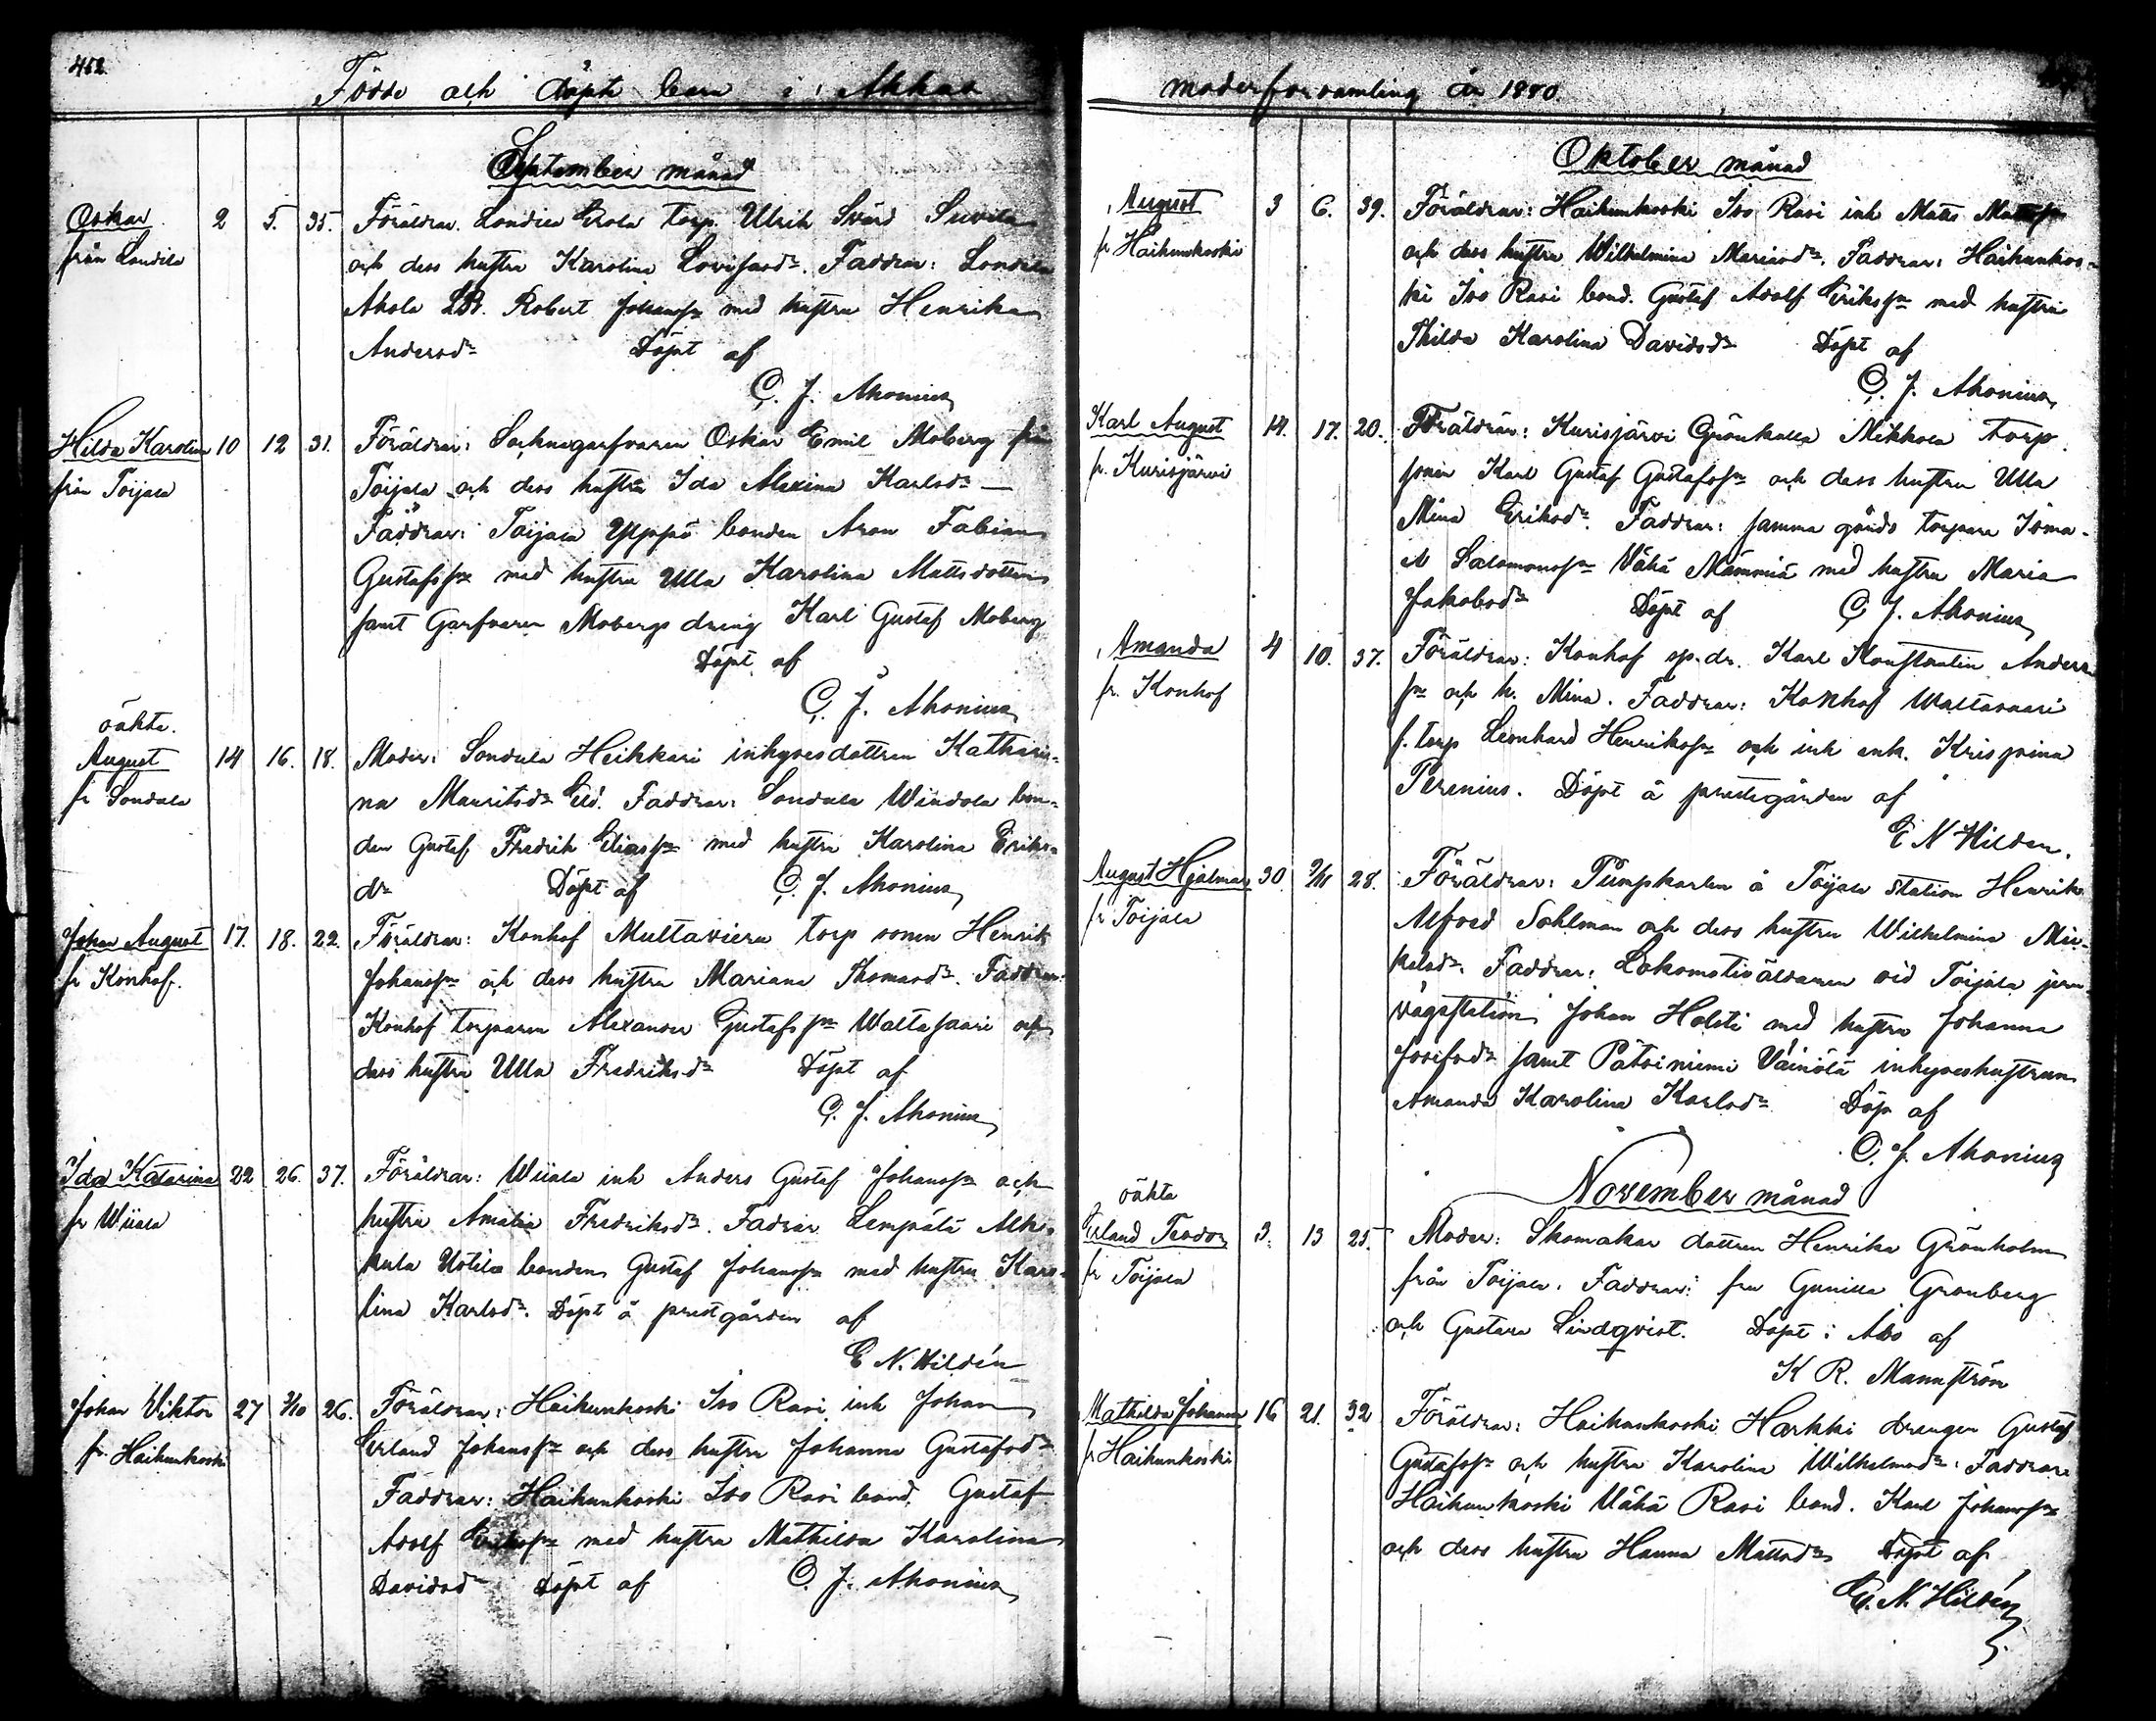 452
Födde och döpte barn i Akkas
September månad
Oskar 2 5. 35. Föräldrar. Londila Erola torp. Ulrik Svärd Suvila
från Londila och dess hustru Karolina Lovisasdr. Faddrar: Londila
Ahola LB. Robert Johansson med hustru Henrika
Andersdr Döpt af
C. J. Ahonius
Hilda Karolina 10 12 31. Föräldrar: Socknegarfvaren Oskar Emil Moberg från
från Toijala Toijala och dess hustru Ida Alexina Karlsdr —
Faddrar: Toijala Yppö bonden Aron Fabian
Gustafsson med hustru Ulla Karolina Mattsdotter
samt Garfvaren Mobergs dreng Karl Gustaf Moberg
Döpt af
C. J. Ahonius
oäkta.
August 14 16. 18. Moder: Sondula Heikkari inhysesdottren Kathari-
fr Sondula na Mauritsdr Eld. Faddrar: Sondula Windola bon-
den Gustaf Fredrik Eliasson med hustru Karolina Eriks-
dr Döpt af C. J. Ahonius
Johan August 17. 18. 22. Föräldrar: Konhof Multaviera torp sonen Henrik
fr Konhof. Johansson och dess hustru Mariana Thomasdr. Faddrar:
Konhof torparen Alexander Gustafsson Waltasaari och
dess hustru Ulla Fredriksdr Döpt af
C. J. Ahonius
Ida Katarina 22. 26. 37. Föräldrar: Wiiala inh Anders Gustaf Johansson och
fr Wiiala hustru Amalia Fredriksdr. Fadrar Lempälä Alk-
kula Uotila bonden Gustaf Johansson med hustru Karo-
lina Karlsdr. Döpt å prestgården af
E N. Hildén
Johan Viktor 27 3/10 26. Föräldrar: Haihunkoski Iso Rasi inh Johan
fr. Haihunkoski Erland Johansson och dess hustru Johanna Gustafsdr
Faddrar: Haihunkoski Iso Rasi bond. Gustaf
Adolf Eriksson med hustru Mathilda Karolina
Davidsdr Döpt af C. J. Ahonius
moderförsamling år 1880.
Oktober månad
August 3 6. 39. Föräldrar: Haihunkoski Iso Rasi inh Matts Mattsson
fr Haihunkoski och dess hustru Wilhelmina Mariasdr. Faddrar: Haihunkos-
ki Iso Rasi bond. Gustaf Adolf Eriksson med hustru
Thilda Karolina Davidsdr Döpt af
C. J. Ahonius
Karl August 14. 17. 20. Föräldrar: Kurisjärvi Grönkulla Mikkola torp.
fr. Kurisjärvi sonen Karl Gustaf Gustafsson och dess hustru Ulla
Mina Eriksdr. Faddrar: samma gårds torpare Isma-
el Salomonsson Vähä Mämmiä med hustru Maria
Jakobsdr Döpt af C. J. Ahonius
Amanda 4 10. 37. Föräldrar: Konhof sp. dr. Karl Konstantin Anders-
fr. Konhof son och h. Mina. Faddrar: Konhof Waltasaari
f. torp Leonhard Henriksson och inh enk. Krispina
Terenius. Döpt å prestegården af
E N Hilden.
August Hjalmar 30 7/11 28. Föräldrar: Pumpkarlen å Toijala station Henrik
fr Toijala Alfred Sohlman och dess hustru Wilhelmina Mi-
kelsdr. Faddrar: Lokomotiveldaren vid Toijala jern-
vägsstation Johan Holsti med hustru Johanna
Josefsdr samt Pätsiniemi Väinölä inhyseshustrun
Amanda Karolina Karlsdr Döp af
C. J. Ahonius
November månad
oäkta
Erland Teodor 3. 13 25. Moder: Skomakar dottren Henrika Grönholm
fr Toijala från Toijala. Faddrar: fru Gunilla Granberg
och Gustava Lindqvist. Döpt i Åbo af
K R. Mannström
Mathilda Johanna 16 21. 32 Föräldrar: Haihunkoski Harkki drengen Gustaf
fr Haihunkoski Gustafsson och hustru Karolina Wilhelmsdr. Faddrar:
Haihunkoski Vähä Rasi bond. Karl Johansson
och dess hustru Hanna Mattsdr Döpt af
E. N. Hildén